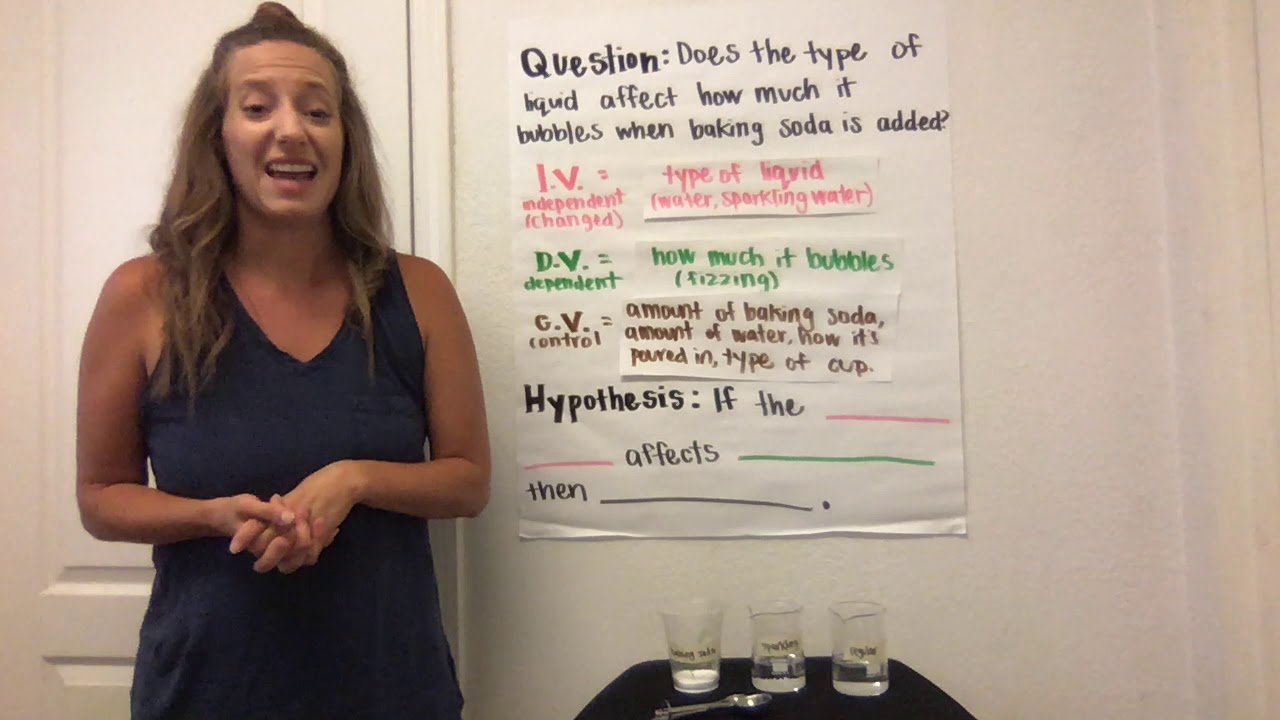 Question: Does the type of
liquid affect how much it
bubbles when baking soda is added?
I.V. = type of liquid
independent (water, sparkling water)
(changed)
D.V. = how much it bubbles
dependent (fizzing)
C.V. = amount of baking soda,
control amount of water, how it's
poured in, type of cup.
Hypothesis: If the
affects
then .
baking soda
sparkling
regular